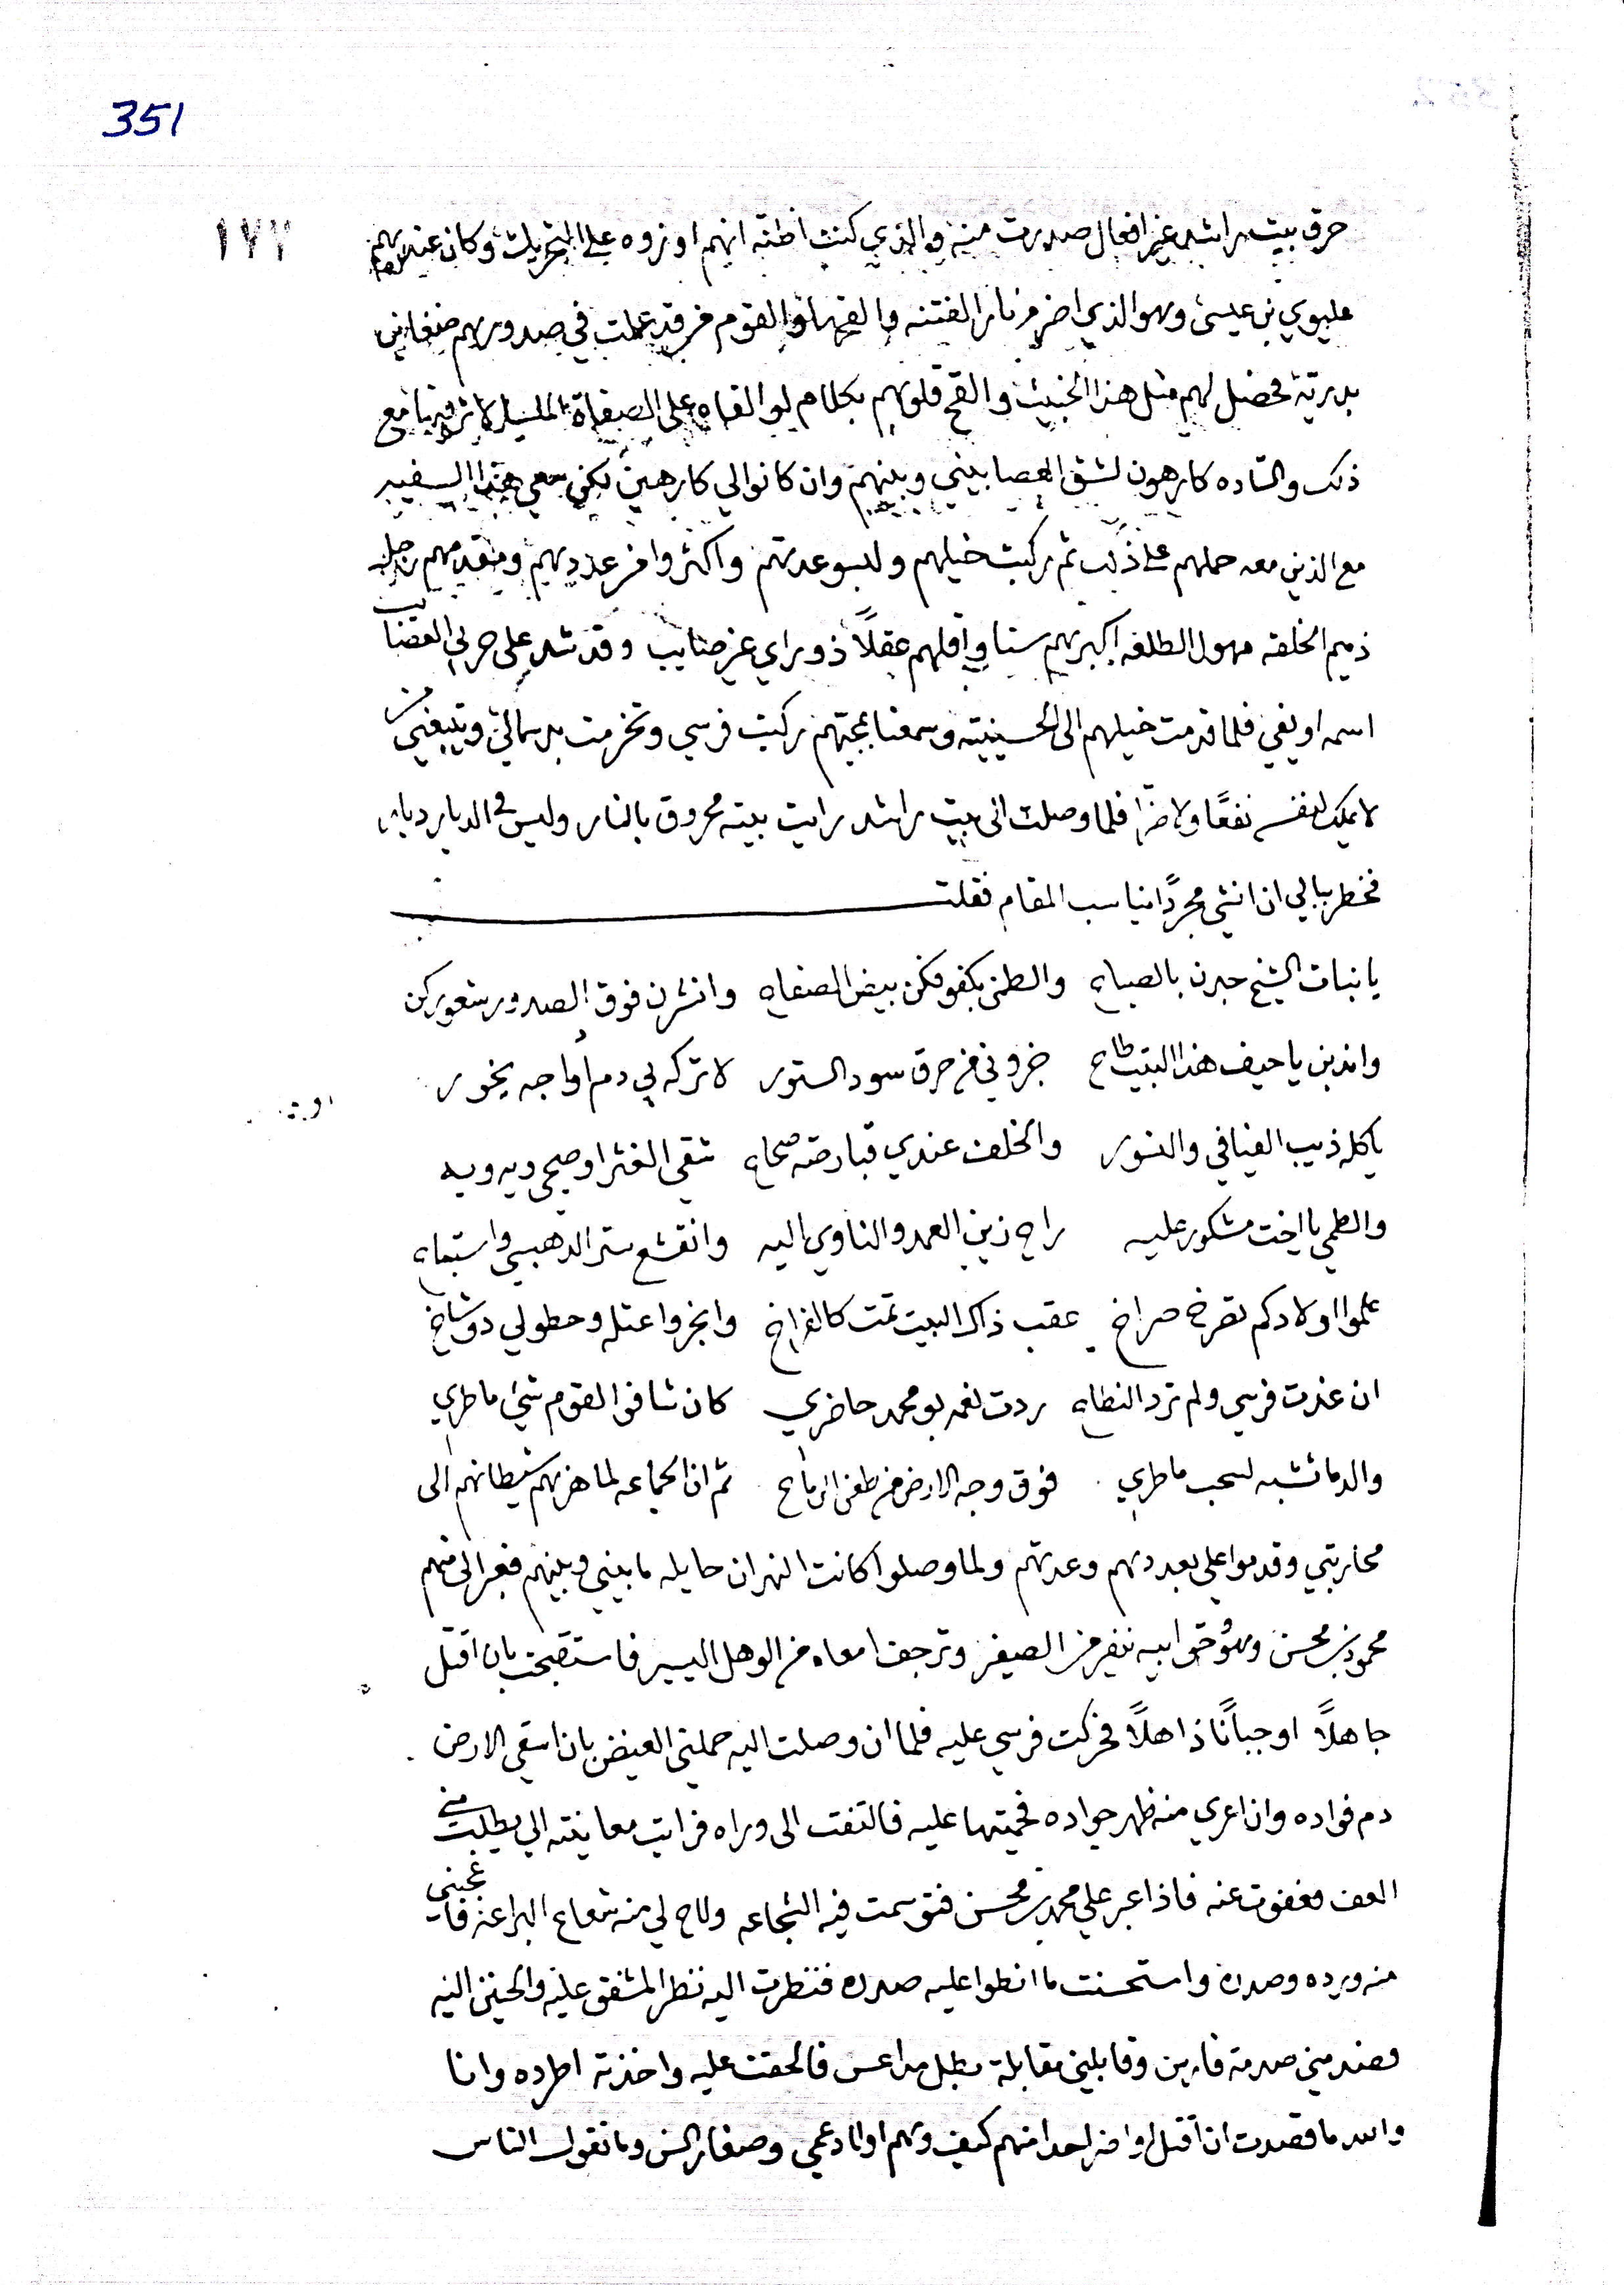 351
١٧٣
حرق بيت راشد غير افعال صدرت منه والذي كنت اظنه انهم اوزوه على التحريك وكان عندهم
عليوي بن عيسى وهو الذي اضرم نار الفتنه والقوم قد عملت في صدورهم ضغاين
بدرية فحصل لهم مثل هذا الخبيث والقح قلوبهم بكلام لو القاه على الصفاة مع
ذلك والساده كارهون لشق العصا بيني وبينهم وان كانوا لي كارهين لكن سعي هذا السفير
مع الذين معه حملهم على ذلك ثم ركبت خيلهم ولبسو عدتهم واكثروا من عددهم ومقدمهم رجل
ذميم الخلقه مهول الطلعه اكبرهم سنا واقلهم عقلاً ذو راي غير صايب وقد شد على حربي العصايب
اسمه فلما قدمت خيلهم الى الحسينيه وسمعنا بمجيتهم ركبت فرسي وتخرمت بدسمالي ويتبعني من
لا يملك لنفسه نفعًا ولا ضرا فلما وصلت الى بيت راشد رايت بيته محروق بالنار وليس في الديار ديار
فخطر ببالي ان انشي مجردًا يناسب المقام فقلت
يا بنات الشيخ جبرن بالصياح والطمن بكفوفكن بيض الصفاح وانشرن فوق الصدور شعوركن
واندبن يا حيف هذا البيت طاح خبروني من حرق سود الستور لا تركه بي دم اواجه يخور
ياكله ذيب الفيافي والنسور والخلف عندي قبارصه صحاح
والطمي يا اخت مشكور عليه راح زين العمد والناوي اليه وانقشع ستر الدهبسي واستباح
علموا اولادكم تصرخ صراخ عقب ذاك البيت تمت كالفراخ
ان عذت فرسي ولم ترد النطاح ردت لغمد بو محمد حاضري كان شافوا القوم شي ما طري
والدما تشبه لسحب ماطري فوق وجه الارض من طعن الرماح ثم ان الجماعه لما هزهم شيطانهم الى
محاربتي وقدموا علي بعددهم وعدتهم ولما وصلوا كانت النهران حايله ما بيني وبينهم فعبر الي منهم
محمود بن محسن وهو ينفر من الصفير وترجف امعاه من الوهل اليسير فاستقبحت بان اقتل
جاهلاً او جباناً ذاهلاً فحركت فرسي عليه فلما ان وصلت اليه حملني الغيض بان اسقي الارض
دم فواده وان اعري منه ظهر جواده فحميتها عليه فالتفت الى وراه فرايت معاينته الي يطلب مني
العفو فعفوت عنه فاذا عبر علي محمد بن محسن فتوسمت فيه الشجاعه ولاح لي منه شعاع البراعه فاعجبني
منه ورده وصدره واستحسنت ما انطوا عليه صدره فنظرت اليه نظر المشفق عليه والحنين اليه
فصدمني صدمة فارس وقابلني مقابلة بطل مداعس فالحقت عليه واخذته اطرده وانا
والله ما قصدت ان اقتل او اضر احدا منهم كيف وهم اولاد عمي وصغار السن وما تقول الناس